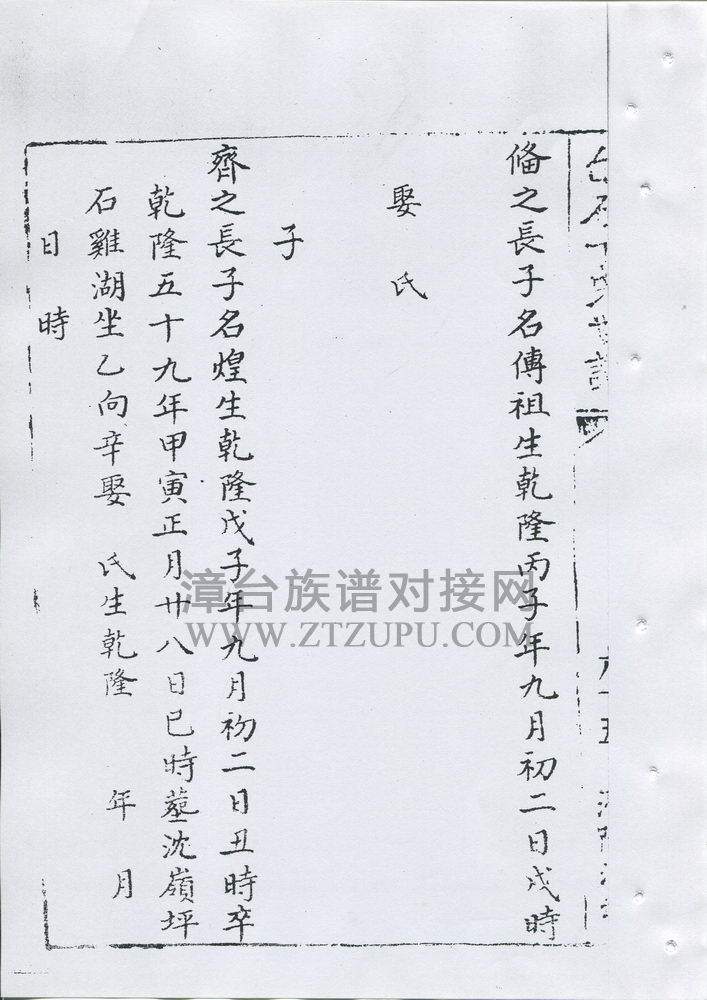 俻之長子名傳祖生乾隆丙子年九月初二日戌時
娶 氏
子
齊之長子名煌生乾隆戊子年九月初二日丑時卒
乾隆五十九年甲寅正月廿八日巳時塟沈嶺坪
石雞湖坐乙向辛娶 氏生乾隆 年 月
日 時
漳台族谱对接网
WWW.ZTZUPU.COM